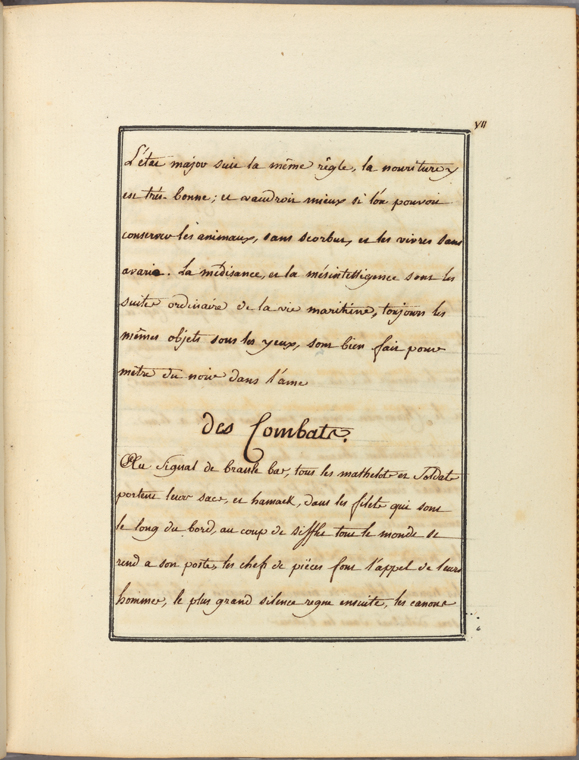 VII
L'état major suit la même règle, la nouriture y
est très-bonne; et vaudroit mieux si l'on pouvoit
conserver les animaux, sans scorbut, et les vivres sans
avarie. La médisance, et la mésintelligence sont les
suite ordinaire de la vie maritime, toujours les
mêmes objets sous les yeux, sont bien fait pour
mêtre du noir dans l'ame
Des Combats.
Au Signal de branle bas, tous les mathelots et Soldats
portent leurs sacs, et hamack, dans les filets qui sont
le long du bord, au coup de sifflet tout le monde se
rend a son poste, les chefs de pièces font l'appel de leurs
hommes, le plus grand silence regne ensuite, les canons